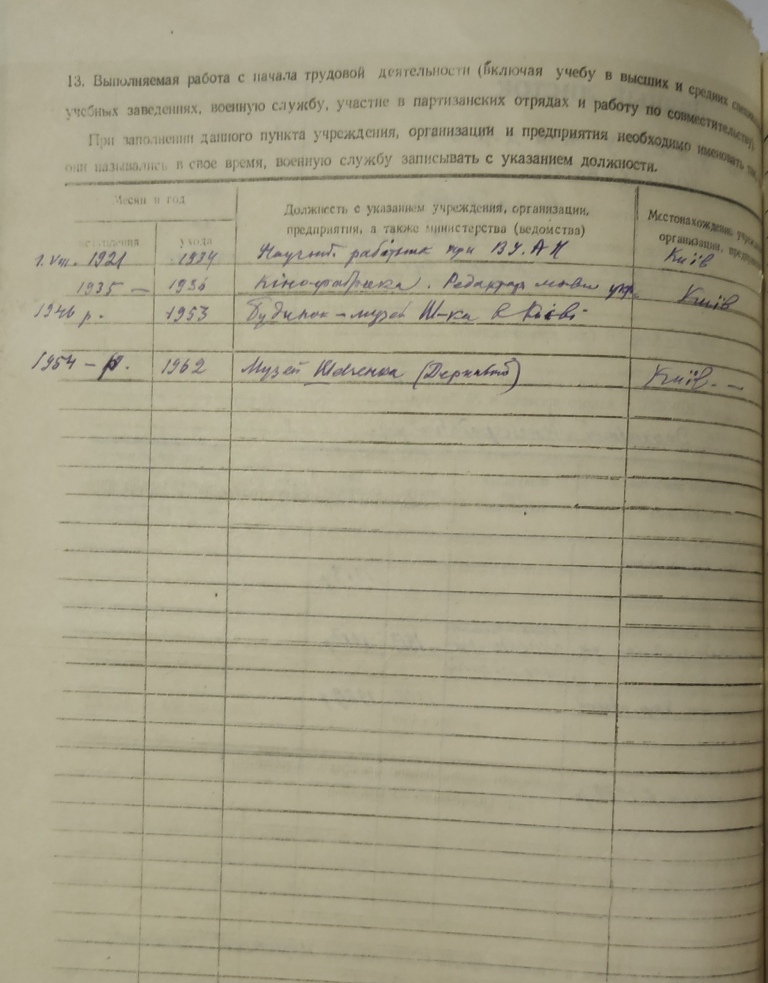 13. Выполняемая работа с начала трудовой деятельности (включая учебу в высших и средних
учебных заведениях, военную службу, участие в партизанских отрядах и работу по совместительству).
При заполнении данного пункта учреждения, организации и предприятия необходимо именовать так,
они назывались в свое время, военную службу записывать с указанием должности.
Месяц и год
Должность с указанием учреждения, организации,
предприятия, а также министерства (ведомства)
Местонахождение
организации,
ухода
1. VIII. 1921 1934 работник при ВУАН Київ
1935 — 1936 Кіно-фабрика. Редактор мови укр. Київ
1946 р. 1953 Будинок-музей Ш-ка в Києві
1954 — р. 1962 Музей Шевченка (Державний) Київ. —